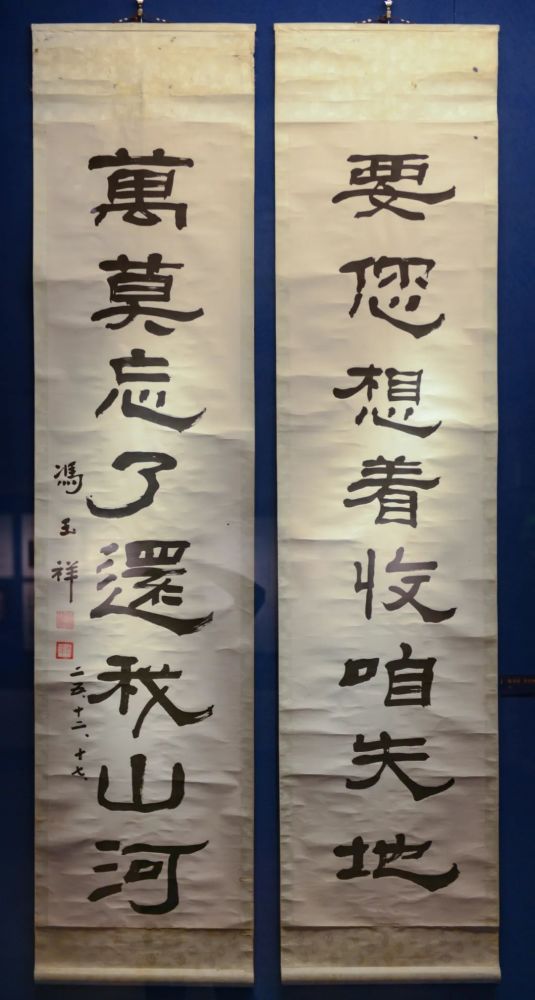 要您想着收咱失地
萬莫忘了還我山河
馮玉祥
二五、十二、十七、